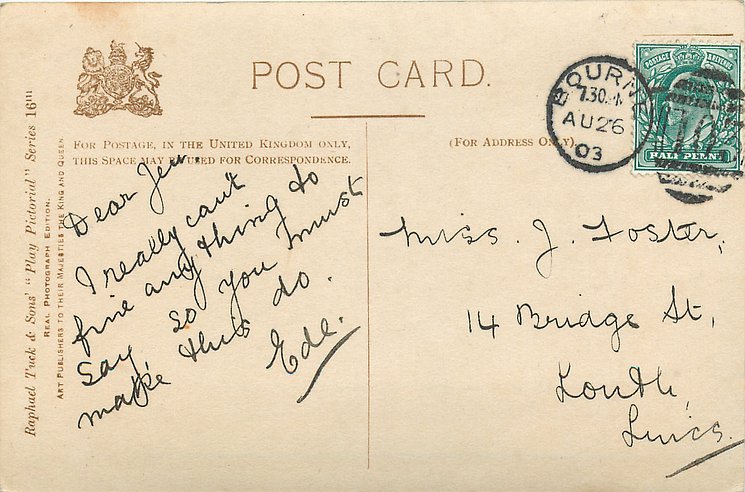 POST CARD.
FOR POSTAGE, IN THE UNITED KINGDOM ONLY,
THIS SPACE MAY BE USED FOR CORRESPONDENCE.
(FOR ADDRESS ONLY)
Raphael Tuck & Sons' "Play Pictorial" Series 16III
REAL PHOTOGRAPH EDITION.
ART PUBLISHERS TO THEIR MAJESTIES THE KING AND QUEEN.
BOURNE
7.30 PM
AU 26
03
POSTAGE REVENUE
HALF PENNY
Dear Jen.
I really can't
fine anything to
say, so you must
make this do.
Ede.
Miss. J. Foster,
14 Bridge St,
Louth,
Lincs.